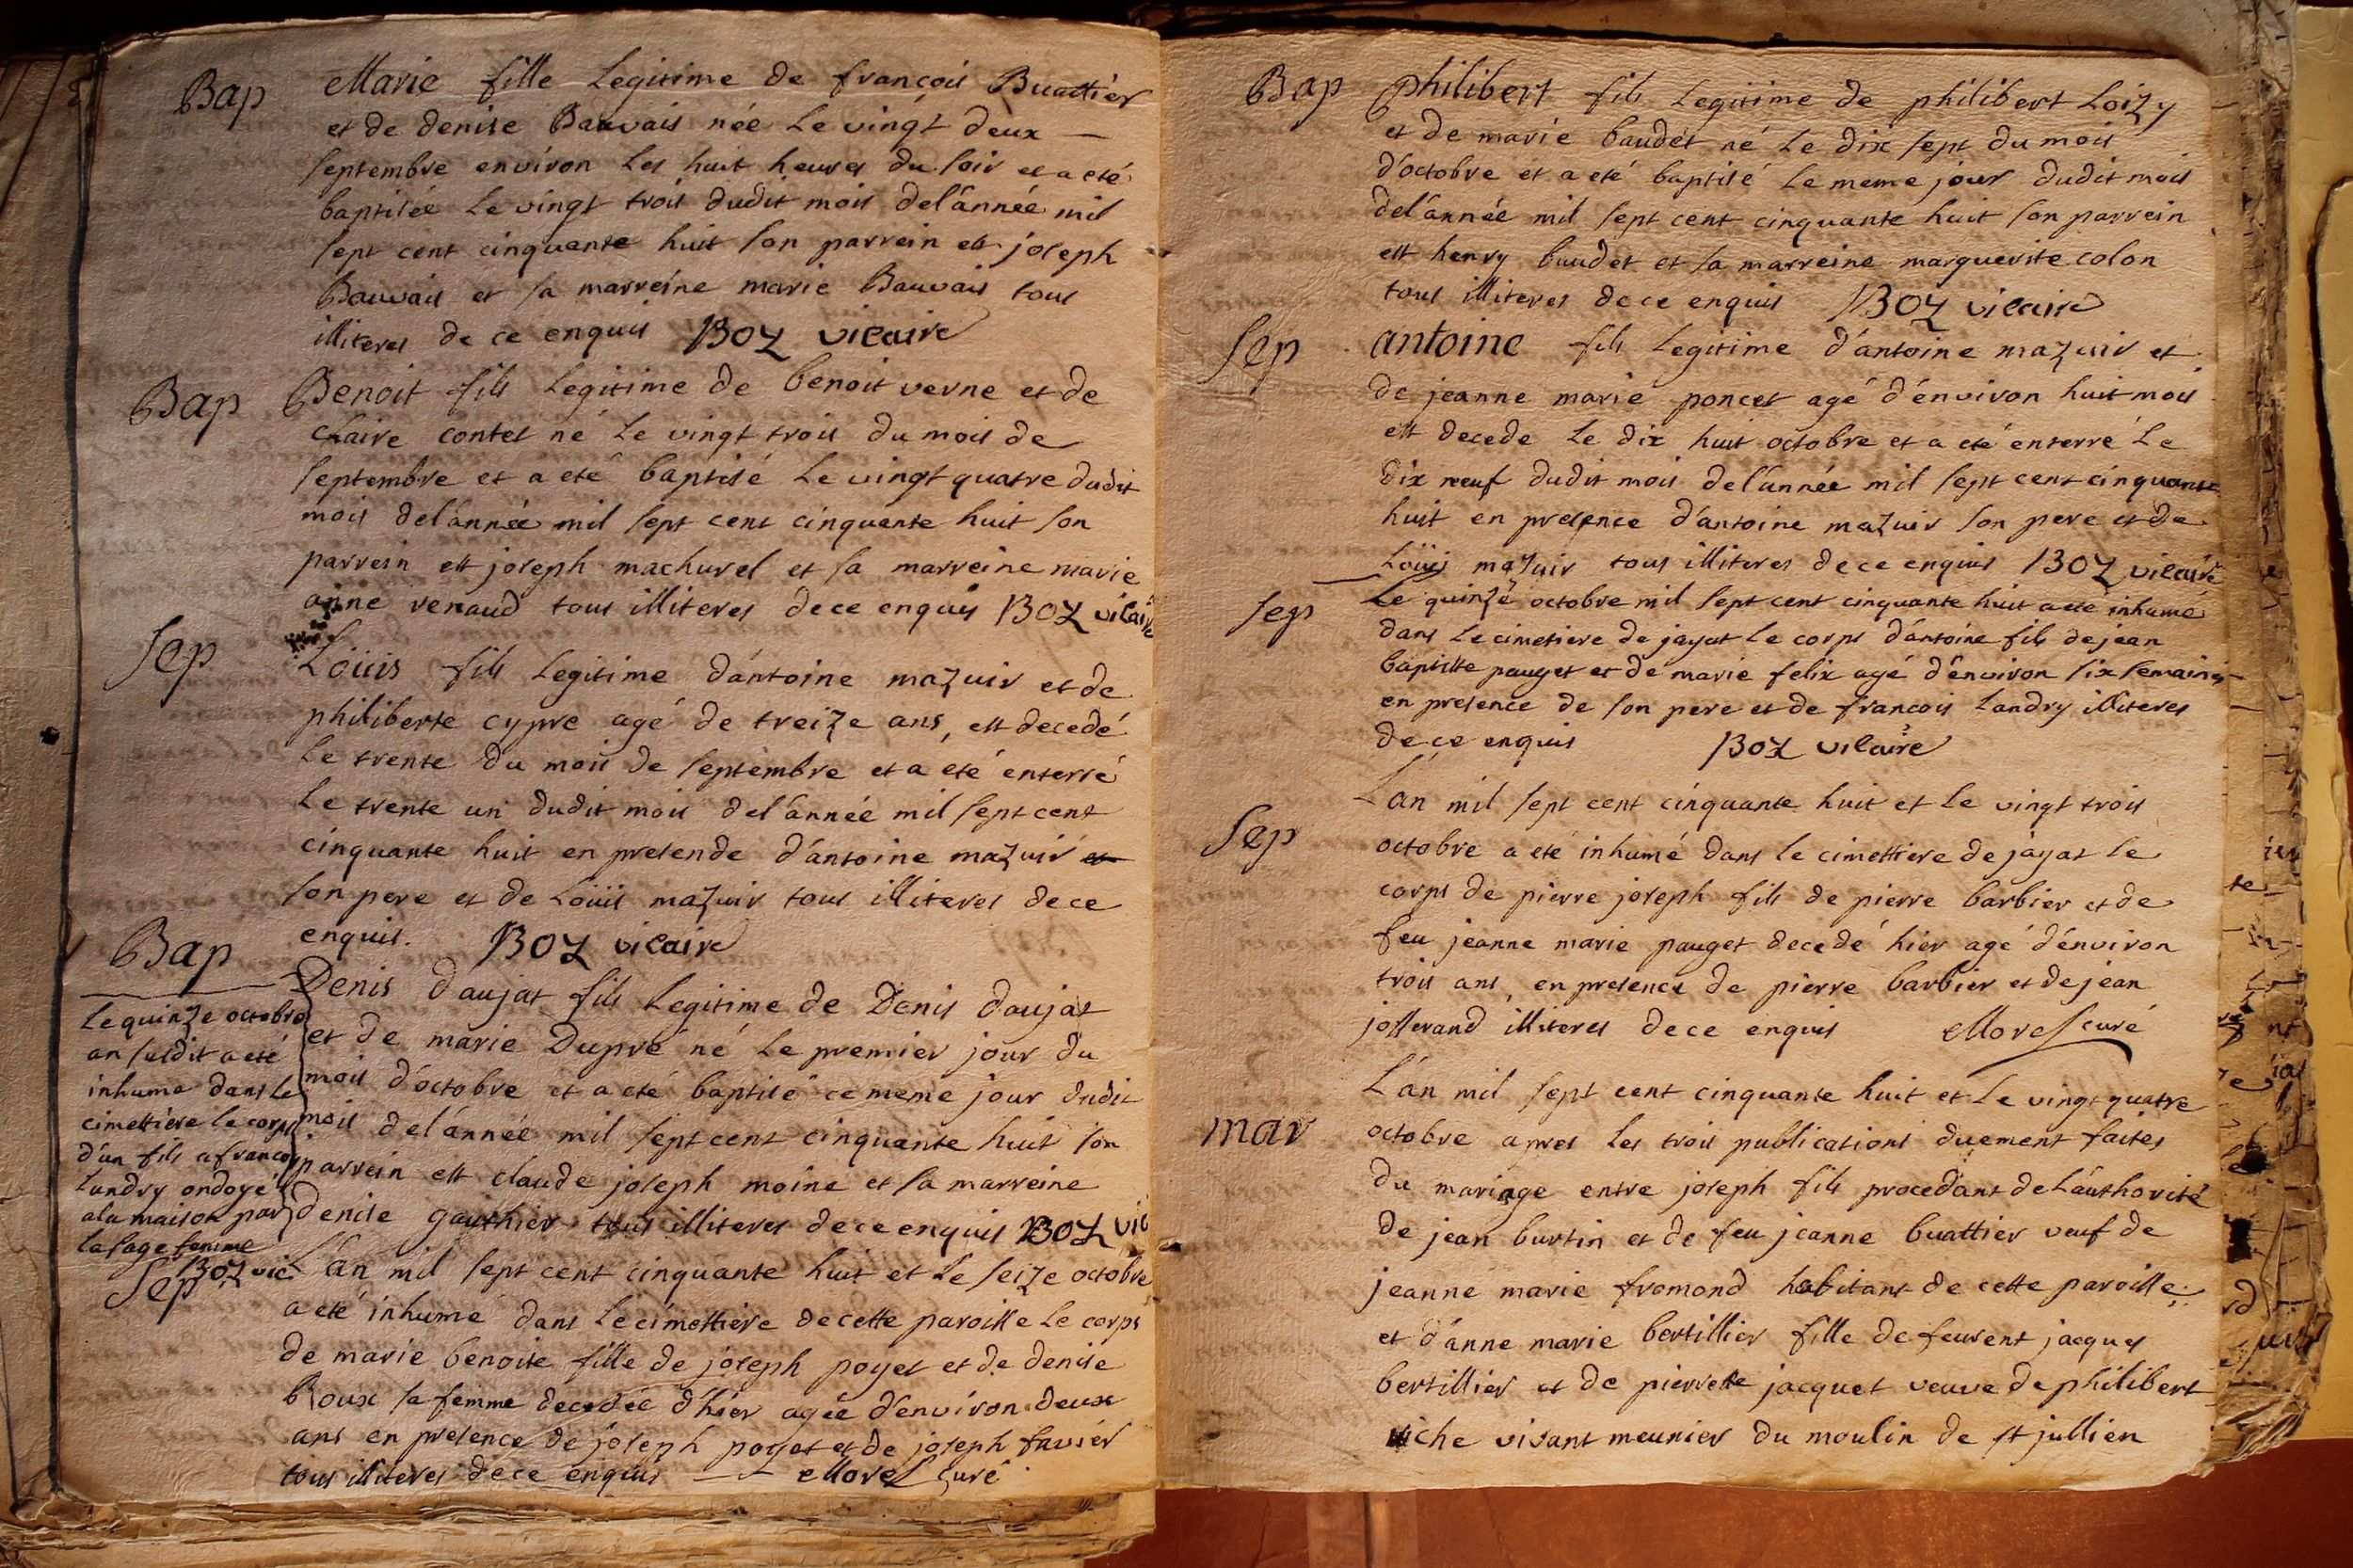 Bap
Marie fille Legitime de françois Buattier
et de denise Bauvais née Le vingt deux
septembre environ Les huit heures du soir et a eté
baptisée Le vingt trois dudit mois del'année mil
sept cent cinquante huit son parrein est joseph
Bauvais et sa marreine marie Bauvais tous
illiteres de ce enquis BOZ vicaire
Bap
Benoit fils Legitime de benoit verne et de
claire contet né Le vingt trois du mois de
septembre et a eté baptisé Le vingt quatre dudit
mois del'année mil sept cent cinquante huit son
parrein est joseph machurel et sa marreine marie
anne renaud tous illiteres dece enquis BOZ vicaire
Sep
Loüis fils Legitime d'antoine mazuir et de
philiberte cypre agé de treize ans, est decedé
Le trente du mois de septembre et a eté enterré
Le trente un dudit mois del'année mil sept cent
cinquante huit en presende d'antoine mazuir et
son pere et de Loüis mazuir tous illiteres dece
enquis. BOZ vicaire
Bap
Denis daujat fils Legitime de Denis daujat
et de marie Dupré né Le premier jour du
mois d'octobre et a eté baptisé ce meme jour dudit
mois del'année mil sept cent cinquante huit son
parrein est claude joseph moine et sa marreine
denise gauthier tous illiteres dece enquis BOZ vic
Le quinze octobre
an susdit a eté
inhume dans Le
cimettiere Le corps
d'un fils a francois
Landry ondoyé
ala maison par
la sage femme
BOZ vic
Sep
L'an mil sept cent cinquante huit et Le seize octobre
a eté inhume dans Le cimettiere decette paroisse Le corps
de marie benoite fille de joseph poyet et de denise
Roux sa femme decedée d'hier agée d'environ deux
ans en presence de joseph poyet et de joseph favier
tous illiteres dece enquis Morel curé
Bap
philibert fils Legitime de philibert Loizy
et de marie baudet né Le dix sept du mois
d'octobre et a eté baptisé Le meme jour dudit mois
del'année mil sept cent cinquante huit son parrein
est henry baudet et sa marreine marguerite colon
tous illiteres dece enquis BOZ vicaire
Sep
antoine fils Legitime d'antoine mazuir et
de jeanne marie poncet agé d'environ huit mois
est decede Le dix huit octobre et a eté enterré Le
dix neuf dudit mois del'année mil sept cent cinquante
huit en presence d'antoine mazuir son pere et de
Loüis mazuir tous illiteres dece enquis BOZ vicaire
Sep
Le quinze octobre mil sept cent cinquante huit a eté inhumé
dans Le cimetiere de jayat Le corps d'antoine fils de jean
baptiste pauget et de marie felix agé d'environ six semaines
en presence de son pere et de francois Landry illiteres
dece enquis BOZ vicaire
Sep
L'an mil sept cent cinquante huit et Le vingt trois
octobre a eté inhumé dans Le cimettiere de jayat Le
corps de pierre joseph fils de pierre barbier et de
feu jeanne marie pauget decedé hier agé d'environ
trois ans en presence de pierre barbier et de jean
josserand illiteres dece enquis Morel curé
mar
L'an mil sept cent cinquante huit et Le vingt quatre
octobre apres Les trois publications duement faites
du mariage entre joseph fils procedant de L'authorité
de jean burtin et de feu jeanne buattier veuf de
jeanne marie fromond habitant de cette paroisse
et d'anne marie bertillier fille de feurent jacques
bertillier et de pierrette jacquet veuve de philibert
viche vivant meunier du moulin de st jullien